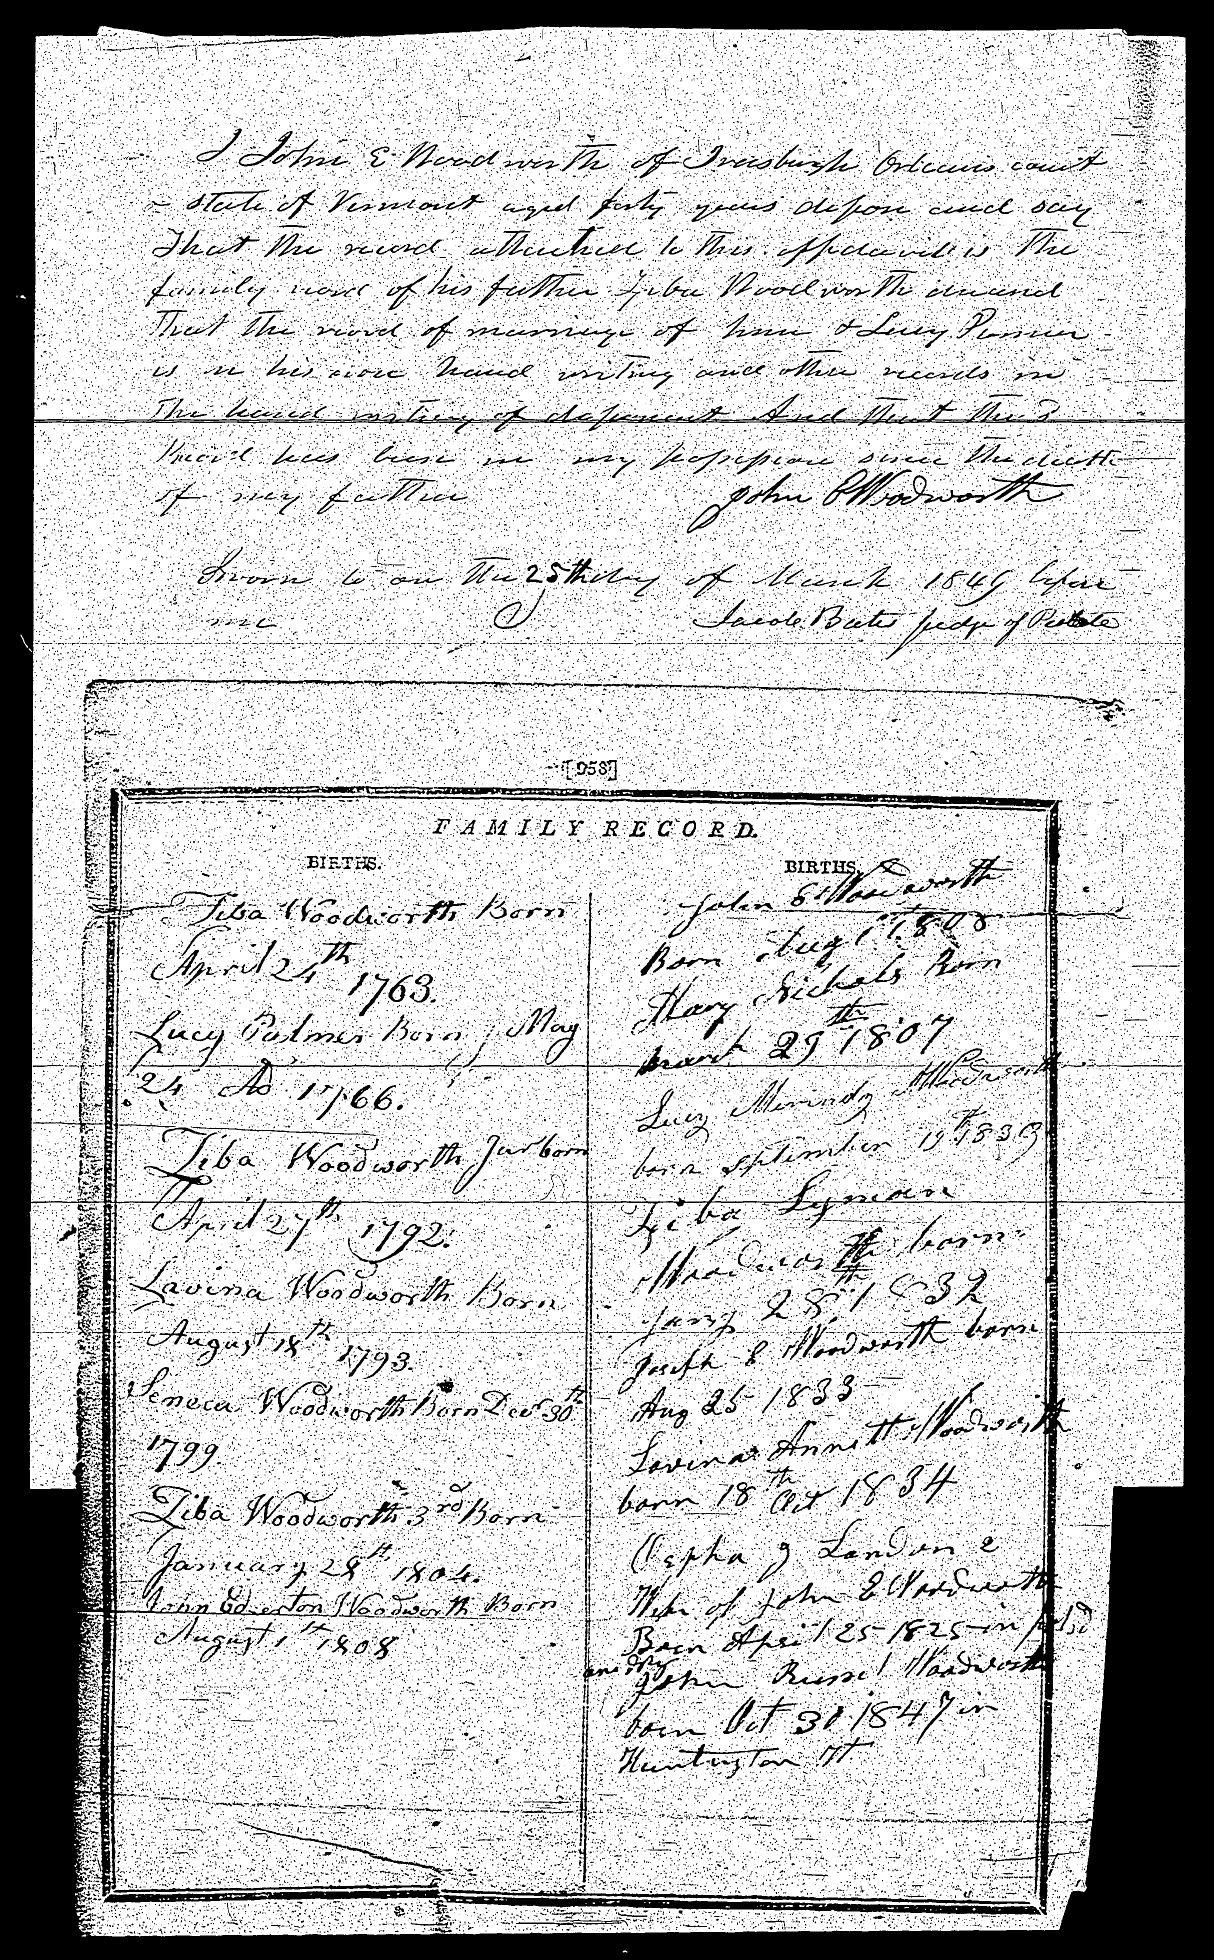 I John E Woodworth of Irasburgh Orleans count
state of Vermont aged forty years depose and say
That the record attached to this affidavit is the
family record of his father Ziba Woodworth and
that the record of marriage of him & Lucy Palmer
is in his own hand writing and other records in
the hand writing of deponent And that this
record has been in my possession since the death
of my father John E Woodworth
Sworn to on the 25th day of March 1849 before
me Jacob Bates judge of Probate
[958]
FAMILY RECORD.
BIRTHS.
Ziba Woodworth Born
April 24th 1763.
Lucy Palmer Born May
24 AD 1766.
Ziba Woodworth Jur born
April 27th 1792.
Lavina Woodworth Born
August 18th 1793.
Seneca Woodworth Born Decr 30th
1799
Ziba Woodworth 3rd Born
January 28th 1804.
John Edgerton Woodworth Born
August 1st 1808
BIRTHS
John E Woodworth
Born Aug 1st 1808
Mary Nichols Born
march 29th 1807
Lucy Woodworth
born September 19th 1830
Ziba Lyman
Woodworth born
Jany 28th 1832
Joseph E Woodworth born
Aug 25 1833
Lovina Annett Woodworth
born 18th Oct 1834
Landon 2
Wife of John E Woodworth
Born April 25 1825 in
John Russel Woodworth
born Oct 30 1847 in
Huntington Vt